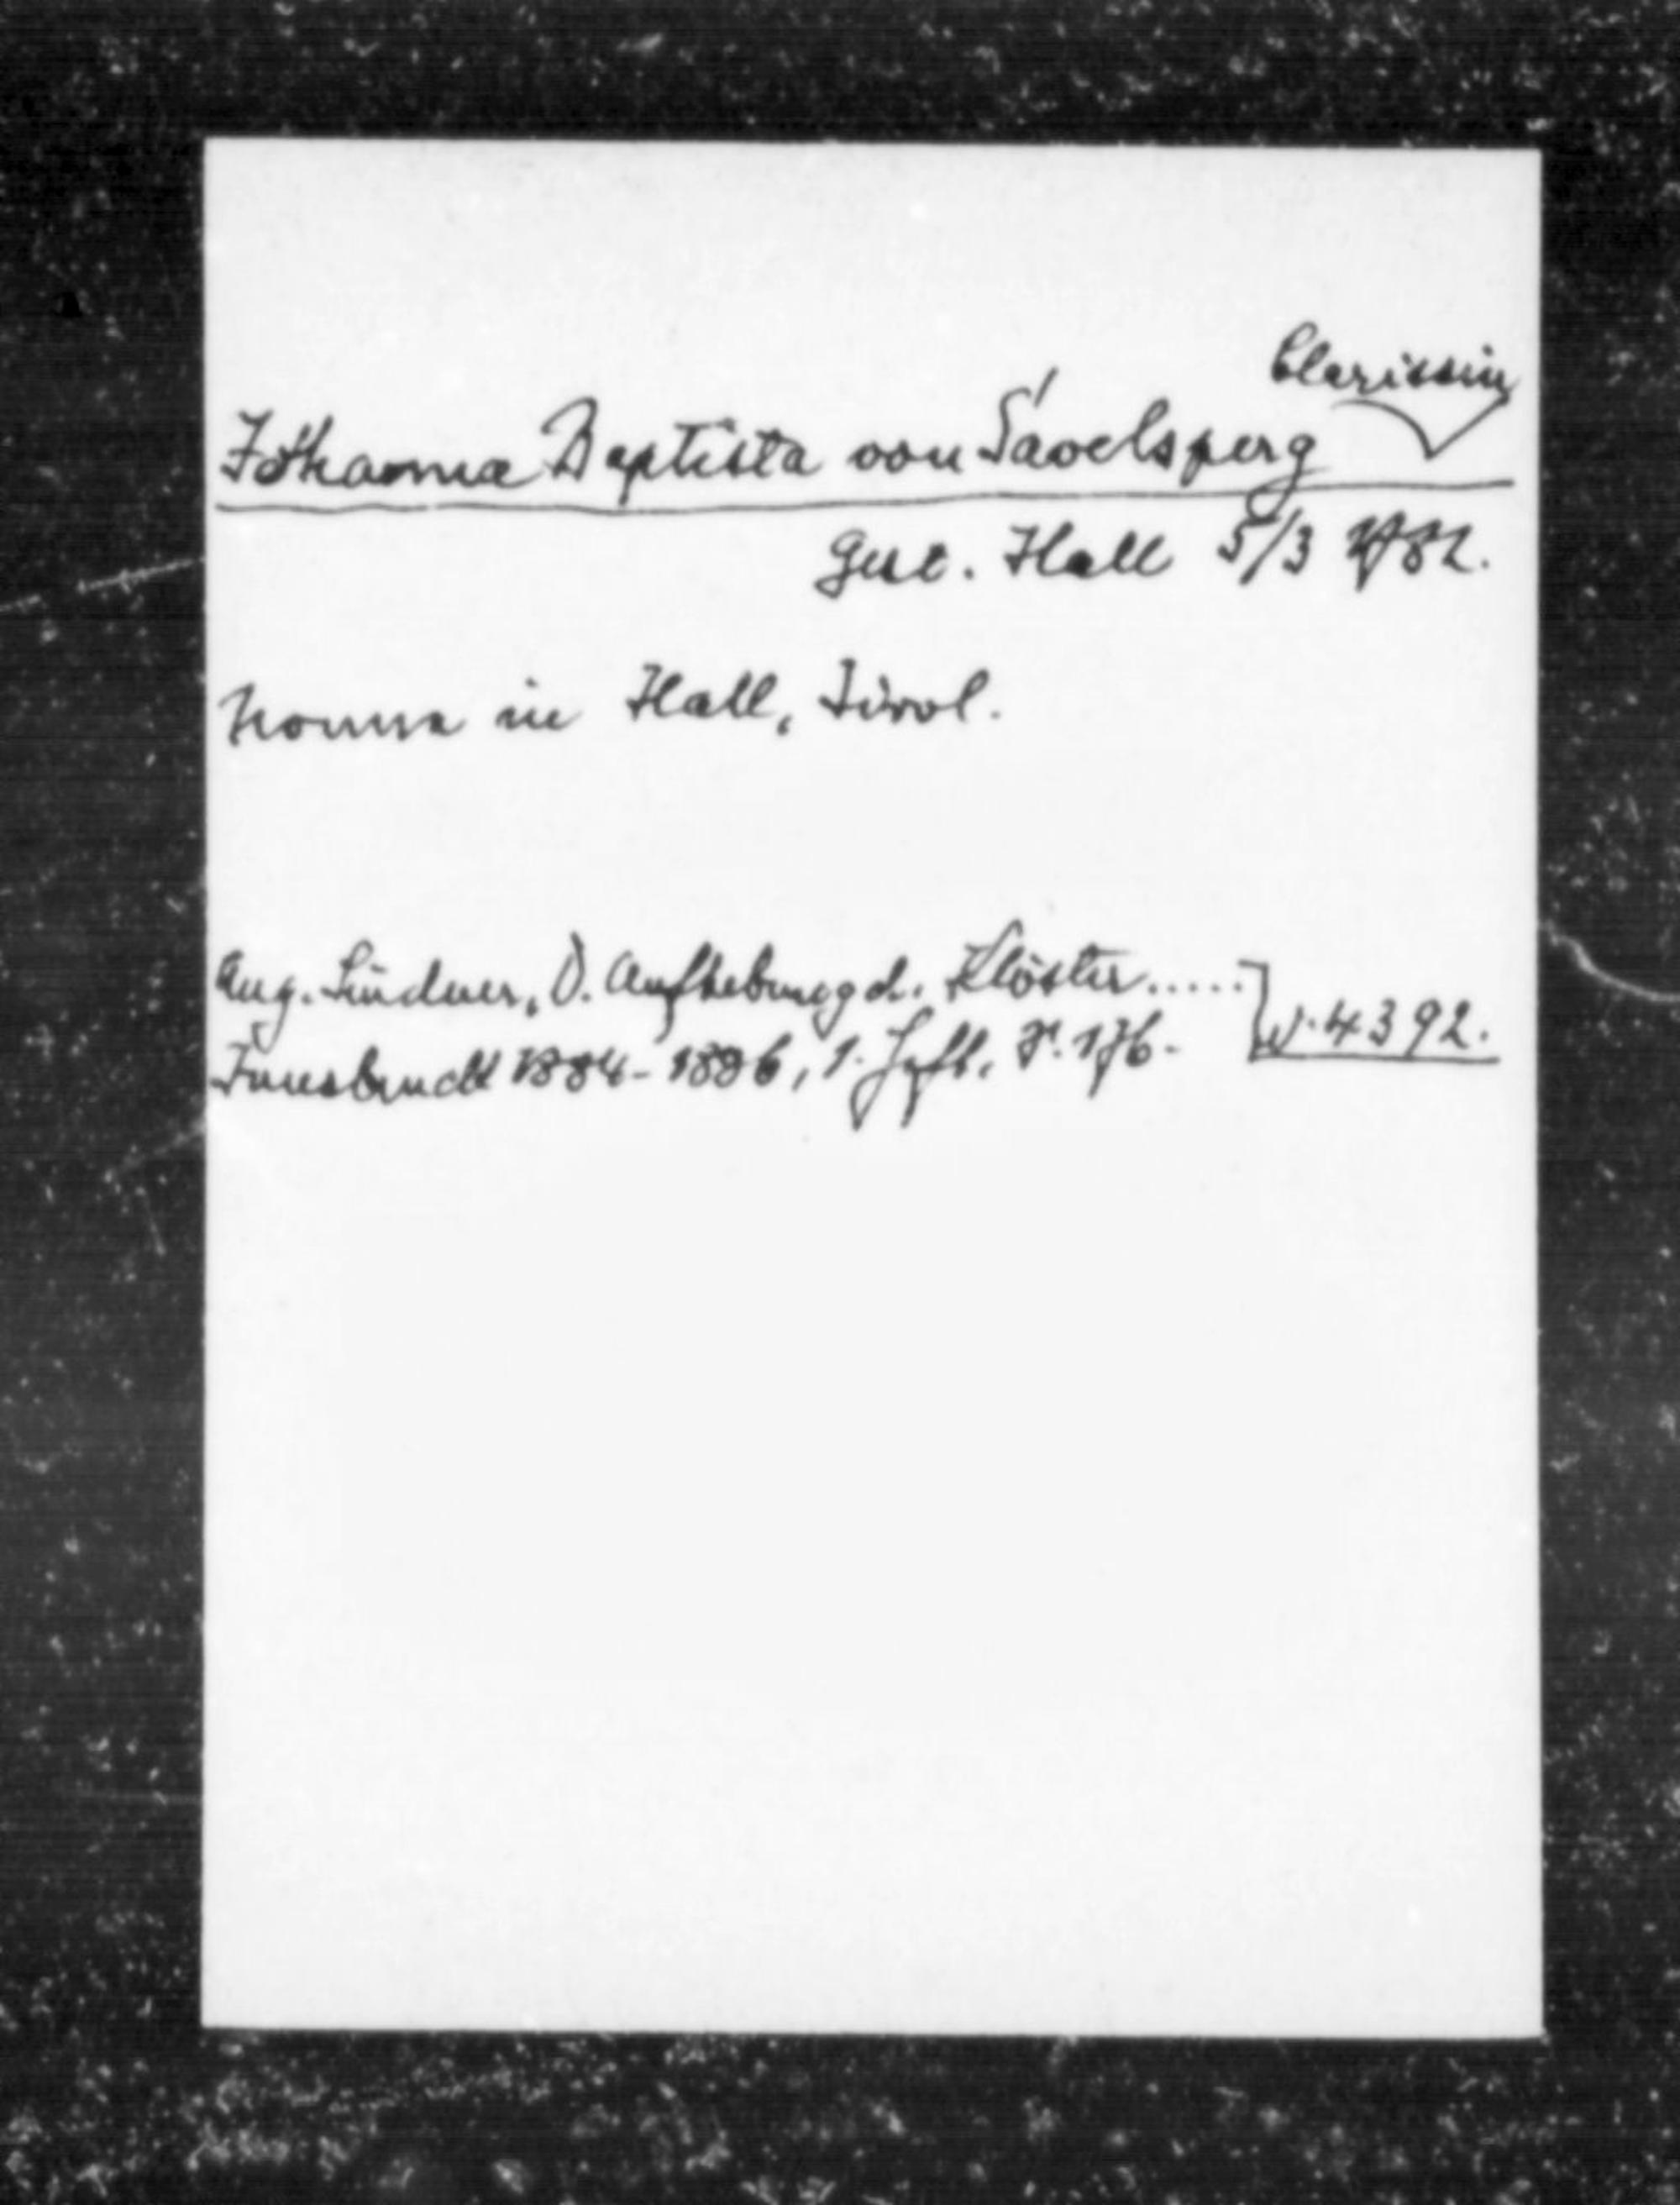 Clarissin
Johanna Baptista von Savelsperg
Gest. Hall 5/3 1782.
Nonna in Hall, Tirol.
Aug. Lindner, D. Aufhebung d. Klöster..... ] W. 4392.
Innsbruck 1884-1886, 1. Hft, S. 176.